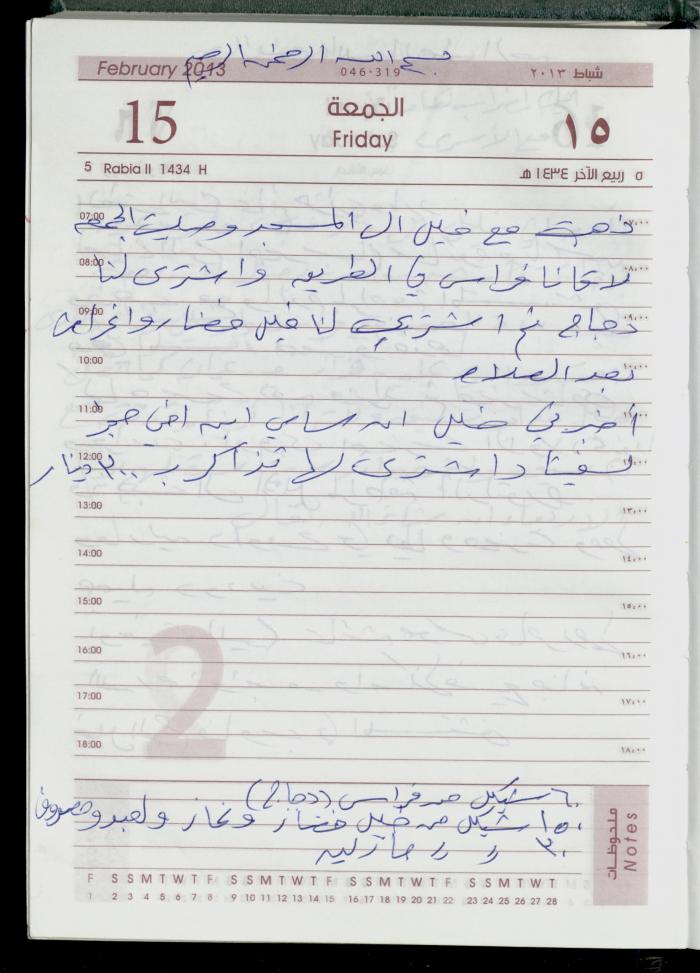 بسم الله الرحمن الرحيم
February 2013 046-319 شباط ٢٠١٣
15 الجمعة ١٥
Friday
5 Rabia II 1434 H ٥ ربيع الآخر ١٤٣٤ هـ
07:00 ذهبت مع خليل الى المسجد وصليت الجمعة ٠٧:٠٠
08:00 لاقانا فراس في الطريق واشترى لنا ٠٨:٠٠
09:00 دجاج ثم اشترى لنا خليل خضار واغراض ٠٩:٠٠
10:00 بعد الصلاه ١٠:٠٠
11:00 اخبرني خليل ان سامي ابن اخي حجز ١١:٠٠
12:00 واشترى لها تذاكر ب ٣٠٠ دينار ١٢:٠٠
13:00 ١٣:٠٠
14:00 ١٤:٠٠
15:00 ١٥:٠٠
16:00 ١٦:٠٠
17:00 ١٧:٠٠
18:00 ١٨:٠٠
2
٦٠ شيكل من فراس (دجاج)
١٥٠ شيكل من خليل خضار وغاز ومصروف
٣٠ ر ر
ملحوظات
Notes
F S S M T W T F S S M T W T F S S M T W T F S S M T W T
1 2 3 4 5 6 7 8 9 10 11 12 13 14 15 16 17 18 19 20 21 22 23 24 25 26 27 28